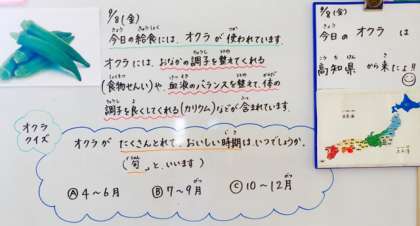 9/8(金)
今日の給食には、オクラが使われています。
オクラには、おなかの調子を整えてくれる
(食物せんい)や、血液のバランスを整えて、体の
調子を良くしてくれる(カリウム)などが含まれています。
オクラ
クイズ
オクラが たくさんとれて、おいしい時期は、いつでしょうか。
(「旬」と、いいます)
Ⓐ4~6月 Ⓑ7~9月 Ⓒ10~12月
9/8(金)
今日の オクラ は
高知県 から来たよ!!